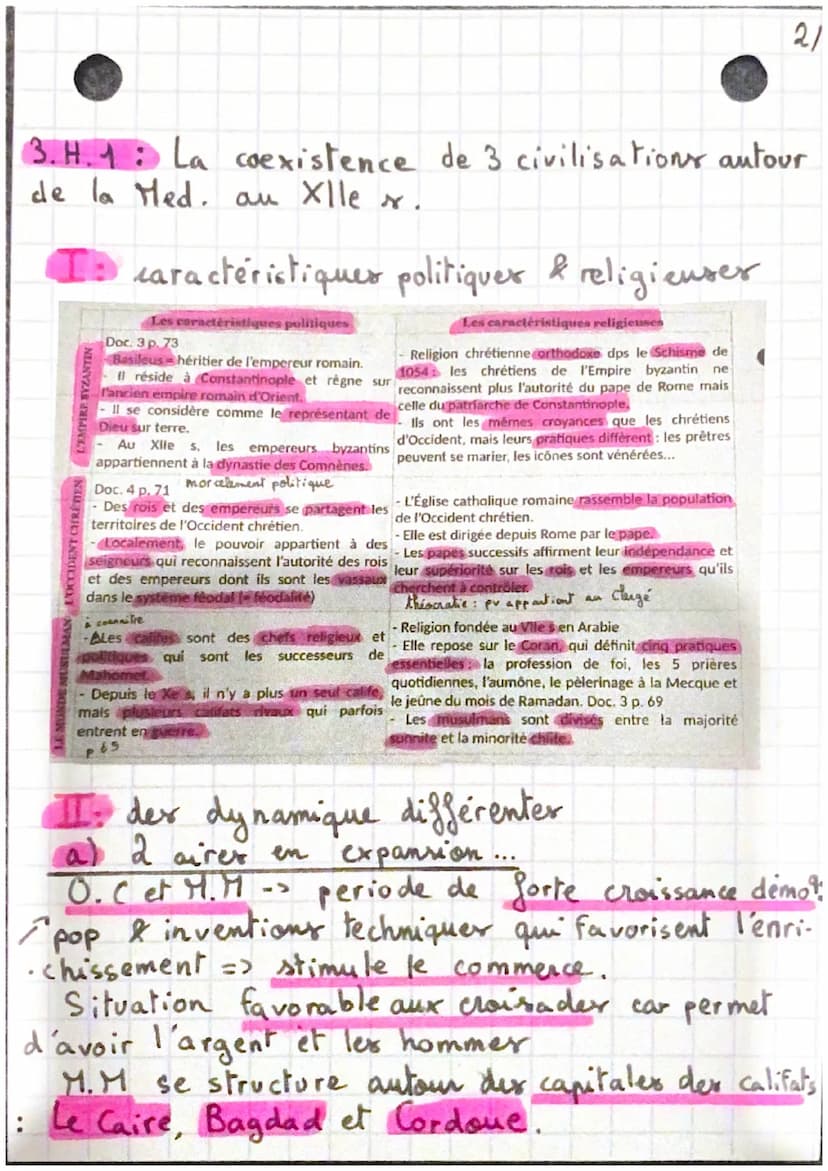 2/
3.H.1 : La coexistence de 3 civilisations autour
de la Med. au XIIe s.
I : caractéristiques politiques & religieuses
Les caractéristiques politiques
Les caractéristiques religieuses
L'EMPIRE BYZANTIN
Doc. 3 p. 73
- Basileus = héritier de l'empereur romain.
- Il réside à Constantinople et règne sur
l'ancien empire romain d'Orient.
- Il se considère comme le représentant de
Dieu sur terre.
- Au XIIe s, les empereurs byzantins
appartiennent à la dynastie des Comnènes.
- Religion chrétienne orthodoxe dps le Schisme de
1054 : les chrétiens de l'Empire byzantin ne
reconnaissent plus l'autorité du pape de Rome mais
celle du patriarche de Constantinople.
- Ils ont les mêmes croyances que les chrétiens
d'Occident, mais leurs pratiques diffèrent : les prêtres
peuvent se marier, les icônes sont vénérées...
L'OCCIDENT CHRÉTIEN
Doc. 4 p. 71 morcelement politique
- Des rois et des empereurs se partagent les
territoires de l'Occident chrétien.
- Localement, le pouvoir appartient à des
seigneurs qui reconnaissent l'autorité des rois
et des empereurs dont ils sont les vassaux
dans le système féodal (= féodalité)
- L'Église catholique romaine rassemble la population
de l'Occident chrétien.
- Elle est dirigée depuis Rome par le pape.
- Les papes successifs affirment leur indépendance et
leur supériorité sur les rois et les empereurs qu'ils
cherchent à contrôler.
théocratie : pv appartient au Clergé
LE MONDE MUSULMAN
à connaitre
- Les califes sont des chefs religieux et
politiques qui sont les successeurs de
Mahomet.
- Depuis le Xe s, il n'y a plus un seul calife,
mais plusieurs califats rivaux qui parfois
entrent en guerre.
p 65
- Religion fondée au VIIe s en Arabie
- Elle repose sur le Coran, qui définit cinq pratiques
essentielles : la profession de foi, les 5 prières
quotidiennes, l'aumône, le pèlerinage à la Mecque et
le jeûne du mois de Ramadan. Doc. 3 p. 69
- Les musulmans sont divisés entre la majorité
sunnite et la minorité chiite.
II : des dynamique différentes
a) 2 aires en expansion ...
O.C et M.M -> periode de forte croissance démo :
↗ pop & inventions techniques qui favorisent l'enri-
chissement => stimule le commerce.
Situation favorable aux croisades car permet
d'avoir l'argent et les hommes
M.M se structure autour des capitales des califats
: Le Caire, Bagdad et Cordoue.